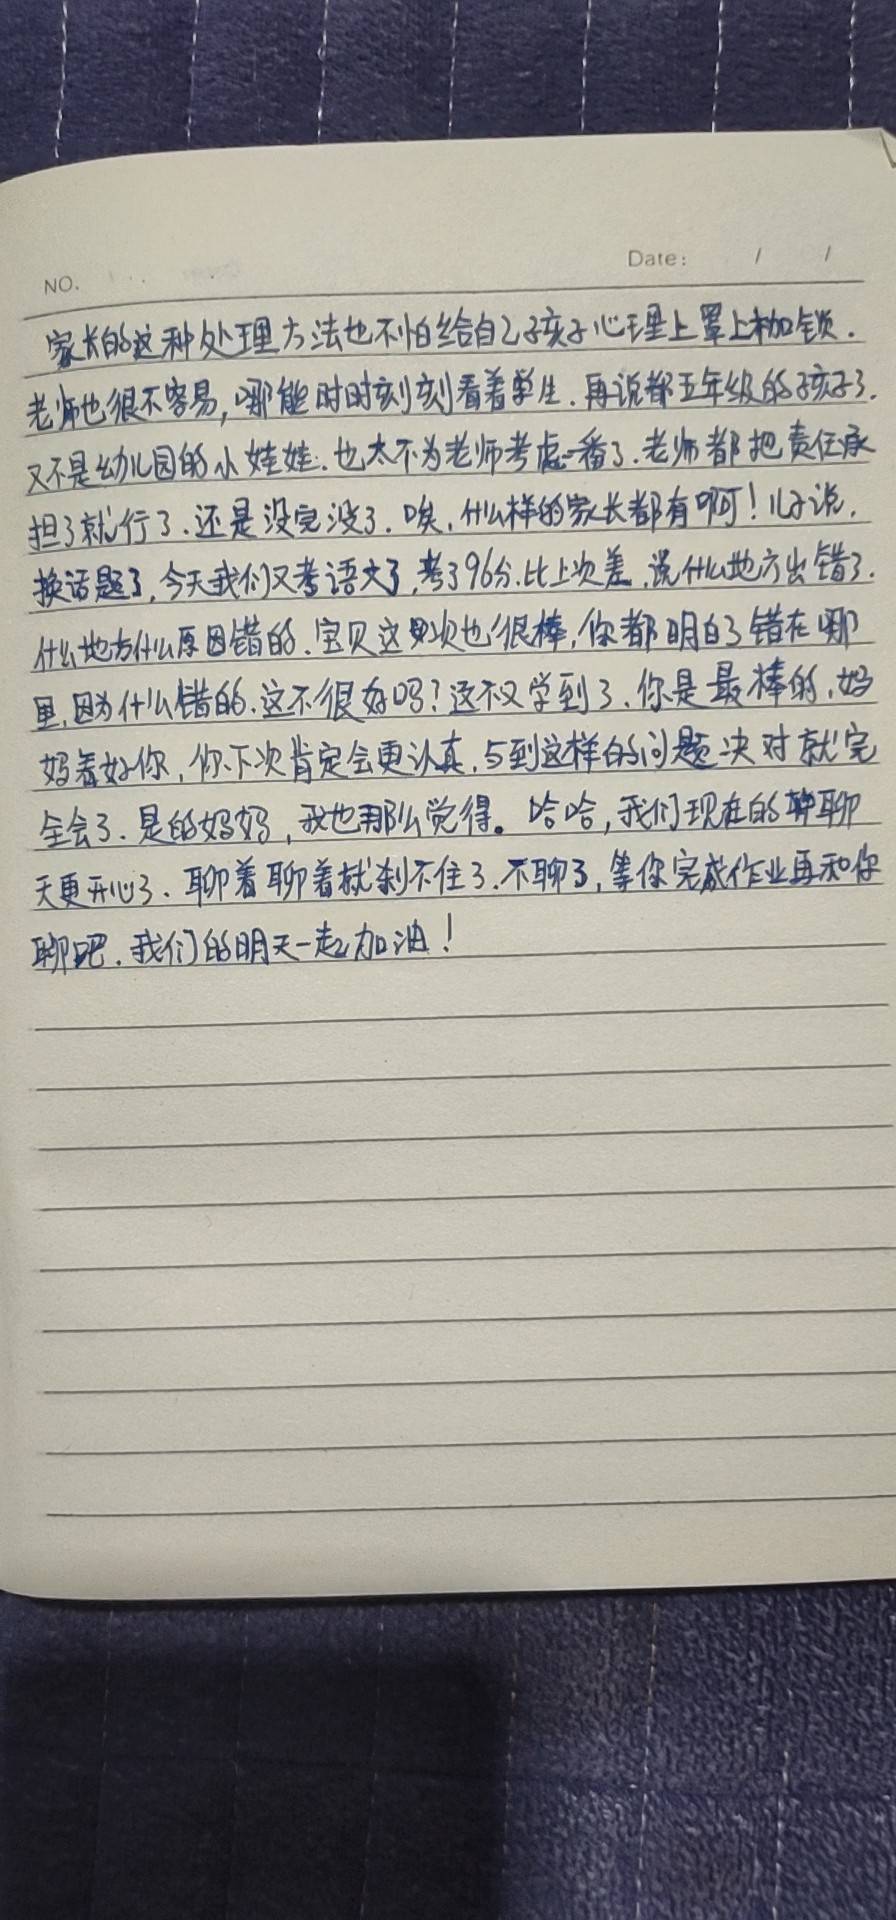 NO.
Date: / /
家长的这种处理方法也不怕给自己孩子心理上罩上枷锁.
老师也很不容易,哪能时时刻刻看着学生.再说都五年级的孩子了.
又不是幼儿园的小娃娃.也太不为老师考虑一番了.老师都把责任承
担了就行了.还是没完没了.唉,什么样的家长都有啊!儿子说,
换话题了,今天我们又考语文了,考了96分.比上次差,说什么地方出错了.
什么地方什么原因错的.宝贝这次也很棒,你都明白了错在哪
里,因为什么错的.这不很好吗?这不又学到了.你是最棒的.妈
妈看好你,你下次肯定会更认真.与到这样的问题决对就完
全会了.是的妈妈,我也那么觉得。哈哈,我们现在的聊
天更开心了.聊着聊着就刹不住了.不聊了,等你完成作业再和你
聊吧.我们的明天一起加油!